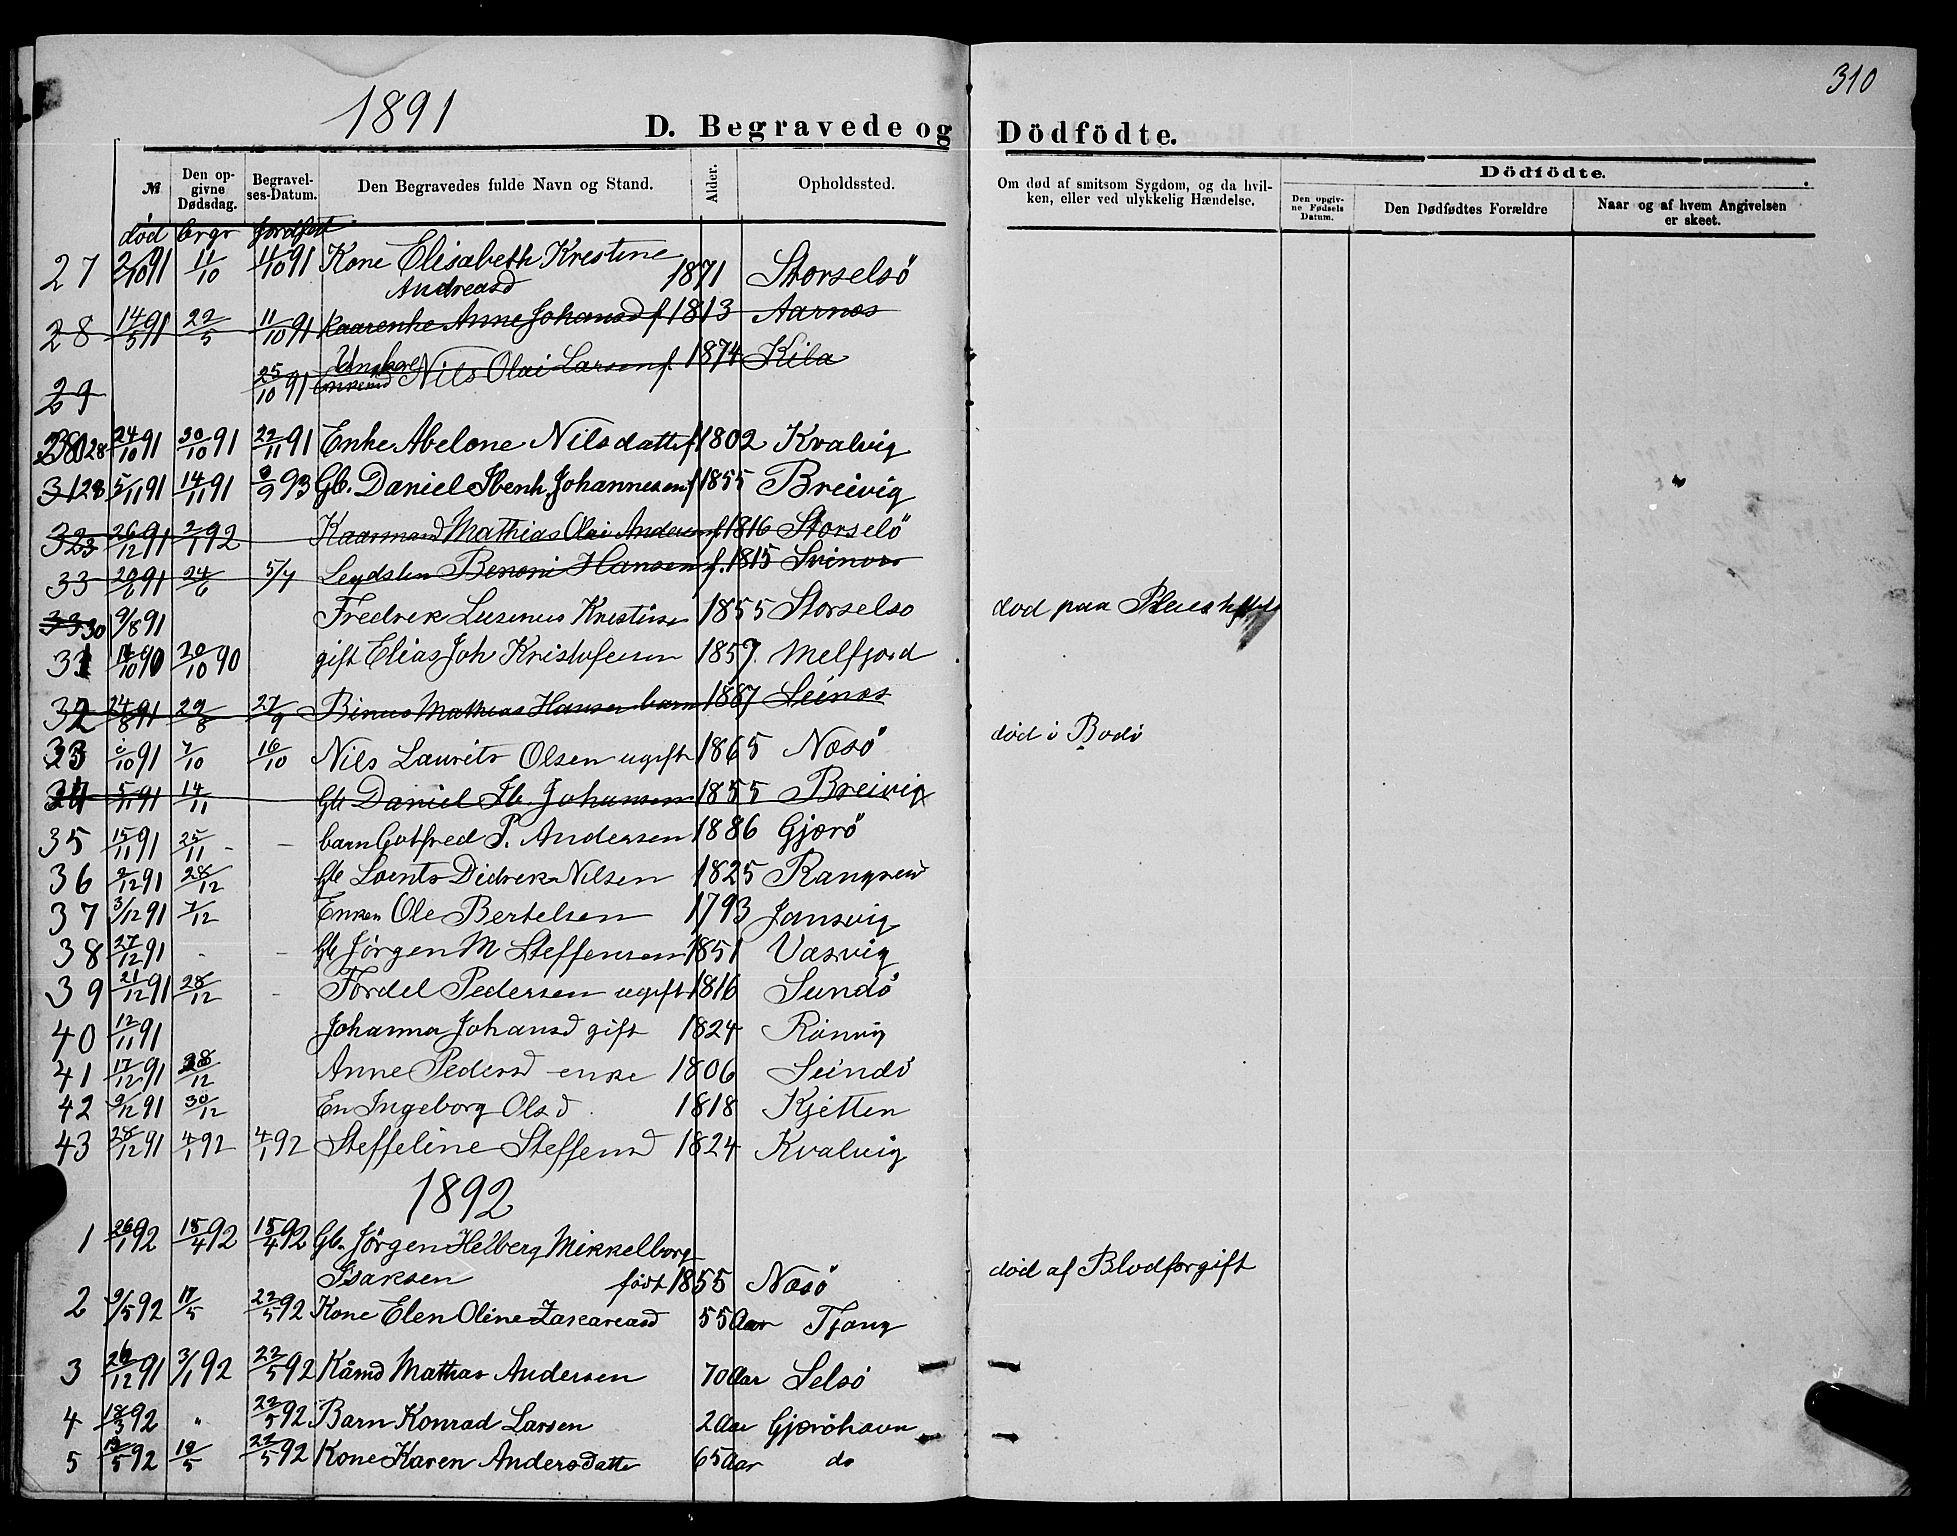 310
1891
D. Begravede og Dödfödte.
№ Den opgivne Dødsdag. Begravelses-Datum. Den Begravedes fulde Navn og Stand. Alder. Opholdssted. Om død af smitsom Sygdom, og da hvilken, eller ved ulykkelig Hændelse. Dödfödte. Den opgivne Fødsels Datum. Den Dødfødtes Forældre Naar og af hvem Angivelsen er skeet.
død begr Jordfæst
27 2/10 91 11/10 11/10 91 Kone Elisabeth Krestine
Andreasd 1871 Storselsö
28 14/5 91 22/5 11/10 91 Kaarenke Anne Johansd f. 1813 Aarnes
29 25/10 91 Ungkarl Nils Olai Larsen f. 1874 Kila
28 24/10 91 30/10 91 22/11 91 Enke Abelone Nilsdatter f 1802 Kvalvig
31 5/11 91 14/11 91 9/9 93 Gb. Daniel Ibenh. Johannesen f 1855 Breivig
32 26/12 91 2/1 92 Kaarmand Mathias Olai Andersen f. 1816 Storselö
33 29/6 91 24/6 5/7 Lægdslem Benoni Hansen f. 1815 Svinvær
30 9/8 91 Fredrek Lusenus Krestisen 1855 Storselso død paa
31 10/10 90 20/10 90 gift Elias Joh Kristofersen 1859 Melfjord
32 24/8 91 29/8 27/9 Binus Mathias Hansen barn 1887 Leines
33 /10 91 7/10 16/10 Nils Laurits Olsen ugift 1865 Næsö død i Bodö
34 5/11 91 14/11 Gb Daniel Ib. Johansen 1855 Breivig
35 15/11 91 25/11 - - barn Gotfred P. Andersen 1886 Gjærö
36 2/12 91 28/12 Gb Loents Didrek Nilsen 1825
37 3/12 91 7/12 Enken Ole Bertelsen 1793 Jansvig
38 27/12 91 - - Gb Jörgen M Steffensen 1851 Væsvig
39 21/12 91 28/12 - Tordel Pedersen ugift 1816 Sundö
40 12/11 91 Johanna Johansd gift 1824 Rönvig
41 17/12 91 28/12 Anne Pedersd enke 1806 Sundö
42 9/12 91 30/12 En Ingeborg Olsd. 1818 Kjetten
43 28/12 91 4/1 92 4/1 92 Steffeline Steffensd 1824 Kvalvig
1892
1 26/1 92 18/4 92 18/4 92 Gb. Jörgen Helberg Mikkelborg
Isaksen født 1855 Næsö død af Blodforgift
2 9/5 92 17/5 22/5 92 Kone Elen Oline Zakareasd 55 Aar Tjong
3 26/12 91 3/1 92 22/5 92 Kårmd Mathias Andersen 70 Aar Selsö
4 18/3 92 " 22/5 92 Barn Konrad Larsen 2 Aar Gjæröhavn
5 13/5 92 19/5 22/5 92 Kone Karen Andersdatte 65 Aar do